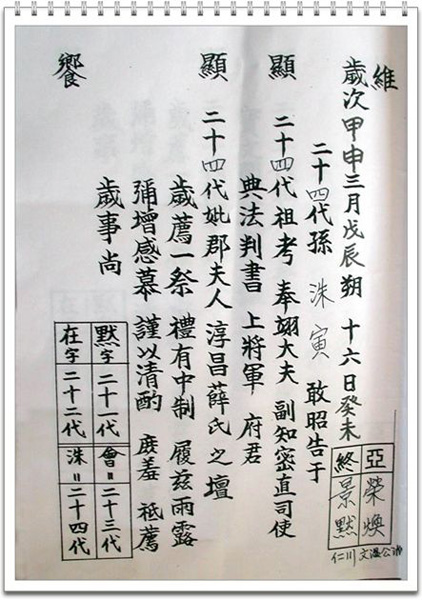 維
歲次甲申三月戊辰朔 十六日癸未
二十四代孫 洙寅 敢昭告于
顯 二十四代祖考 奉翊大夫 副知密直司使
典法判書 上將軍 府君
顯 二十四代妣郡夫人 淳昌薛氏之壇
歲薦一祭 禮有中制 履玆雨露
彌增感慕 謹以清酌 庶羞 祗薦
歲事尚
饗
亞 榮煥
終 景默
仁川 文湛公派
默字 二十一代
在字 二十二代
會〃 二十三代
洙〃 二十四代